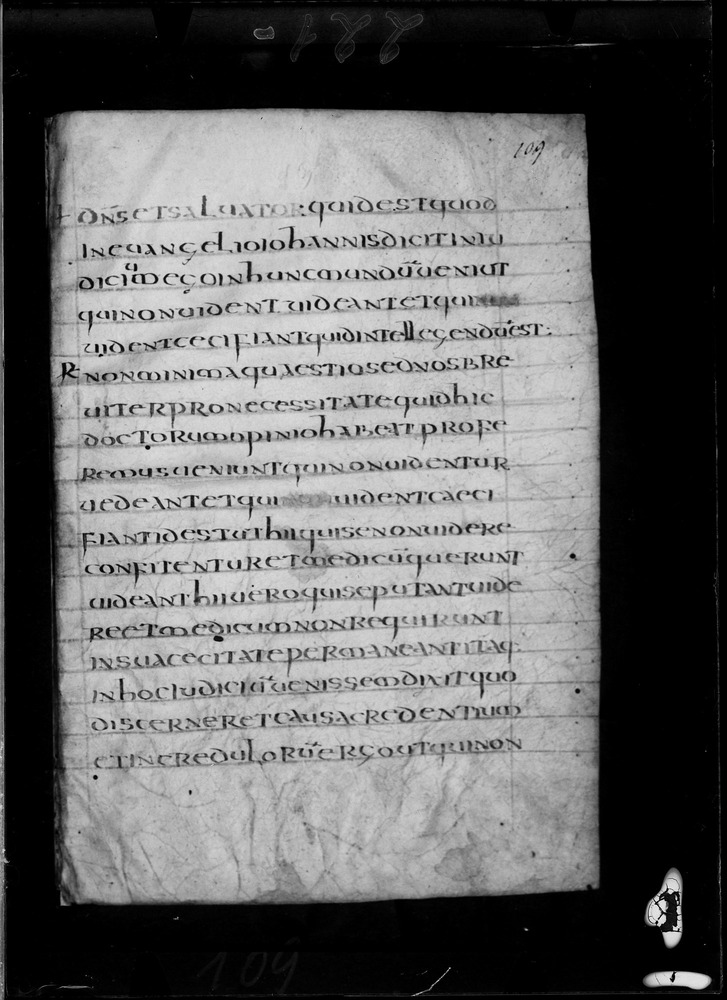 221-
109
DNSETSALUATORQUIDESTQUOD
INEUANGELIOIOHANNISDICITINIU
DICIUMEGOINHUNCMUNDUUENIUT
QUINONUIDENTUIDEANTETQUI
UIDENTCECIFIANTQUIDINTELLEGENDUEST:
R NONMINIMAQUAESTIOSEDNOSBRE
UITERPRONECESSITATEQUIDHIC
DOCTORUMOPINIOHABEATPROFE
REMUSUENIUNTQUINONUIDENTUR
UEDEANTETQUI UIDENTCAECI
FIANTIDESTUTHIIQUISENONUIDERE
CONFITENTURETMEDICUQUERUNT
UIDEANTHIIUEROQUISEPUTANTUIDE
REETMEDICUMNONREQUIRUNT
INSUACECITATEPERMANEANTITAQ·
INHOCIUDICIUUENISSEMDIXITQUO
DISCERNERETCAUSACREDENTIUM
ETINCREDULORUERGOUTQUINON
109